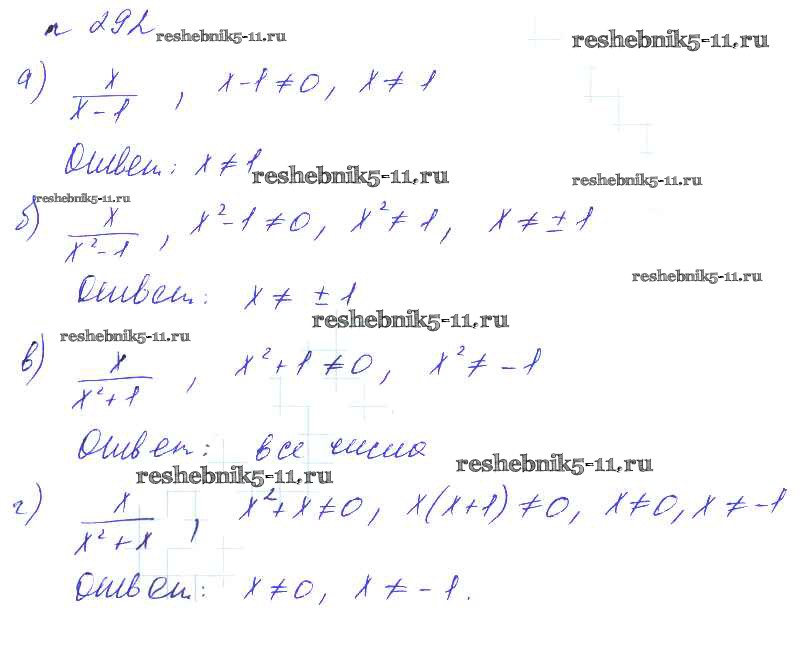 n 292 reshebnik5-11.ru reshebnik5-11.ru
а) x/(x-1), x-1≠0, x≠1
Ответ: x≠1
reshebnik5-11.ru reshebnik5-11.ru
reshebnik5-11.ru
б) x/(x²-1), x²-1≠0, x²≠1, x≠±1
reshebnik5-11.ru
Ответ: x≠ ±1
reshebnik5-11.ru
reshebnik5-11.ru
в) x/(x²+1), x²+1≠0, x²≠-1
Ответ: все числа
reshebnik5-11.ru reshebnik5-11.ru
г) x/(x²+x), x²+x≠0, x(x+1)≠0, x≠0, x≠-1
Ответ: x≠0, x≠-1.